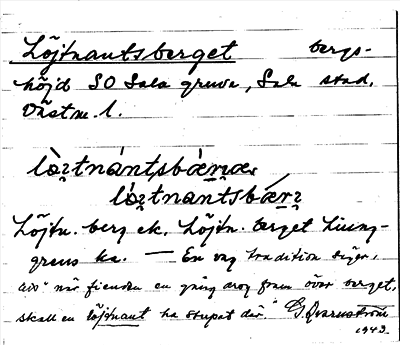 Löjtnantsberget bergs-
höjd SO Sala gruva, Sala stad,
Västm. l.
Löjtn. berg ek. Löjtn. berget
grens ka. — En vag tradition säger,
att "när fienden en gång drog fram över berget,
skall en löjtnant ha stupat där."
1943.